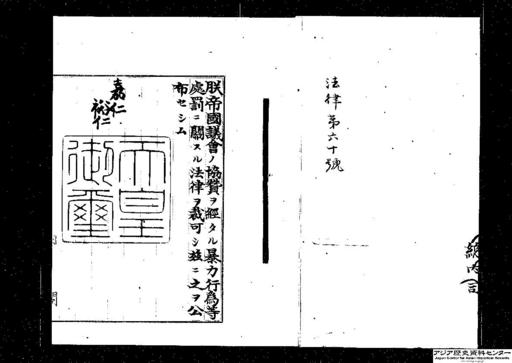 法律第六十號
朕帝國議會ノ協贊ヲ經タル暴力行爲等
處罰ニ關スル法律ヲ裁可シ玆ニ之ヲ公
布セシム
嘉仁
裕仁
天皇
御璽
内閣
アジア歴史資料センター
Japan Center for Asian Historical Records